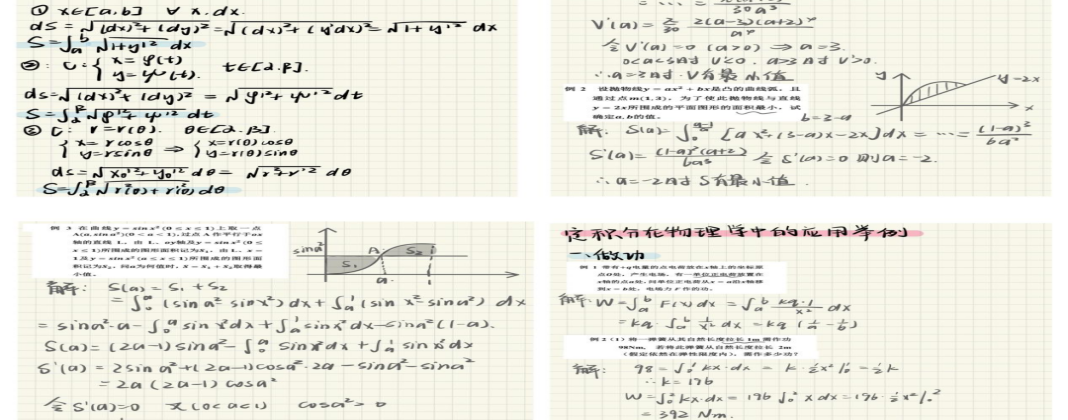 ① x∈[a,b] ∀ x.dx.
ds=√(dx)²+(dy)²=√(dx)²+(y'dx)²=√1+y'² dx
S=∫ₐᵇ √1+y'² dx
②: C: { x=φ(t) y=ψ(t). t∈[α.β].
ds=√(dx)²+(dy)² = √φ'²+ψ'² dt
S=∫_α^β √φ'²+ψ'² dt
③ C: r=r(θ). θ∈[α.β].
{ x=rcosθ y=rsinθ ⇒ { x=r(θ)cosθ y=r(θ)sinθ
ds=√x_θ'²+y_θ'² dθ= √r²+r'² dθ
S=∫_α^β √r²(θ)+r'²(θ) dθ
V'(a)= 2(a-3)(a+2)
令V'(a)=0 (a>0) ⇒ a=3.
0<a<3时 V'<0. a>3时 V'>0.
∴a=3时·V有最小值
例 2 设抛物线y=ax²+bx是凸的曲线弧，且
通过点m(1,3)，为了使此抛物线与直线
y=2x所围成的平面图形的面积最小，试
确定a,b的值。
y
y=2x
x
b=3-a
解: S(a)=∫₀ [ax²+(3-a)x-2x]dx = ··· = (1-a)³/6a²
S'(a)= (1-a)²(a+2)/6a³ 令S'(a)=0 则a=-2.
∴a=-2时 S有最小值.
例 3 在曲线y=sinx²(0≤x≤1)上取一点
A(a,sina²)(0<a<1),过点A作平行于ox
轴的直线 L，由 L，oy轴及y=sinx²(0≤
x≤1)所围成的图形面积记为S₁，由 L，x=
1及y=sinx²(a≤x≤1)所围成的图形面
积记为S₂，问a为何值时，S=S₁+S₂取得最
小值。
sina²
A
S₁
S₂
a
1
解: S(a)=S₁+S₂
=∫₀ᵃ(sina²-sinx²)dx+∫ₐ¹(sinx²-sina²) dx
=sina²·a-∫₀ᵃsinx²dx+∫ₐ¹sinx²dx-sina²(1-a).
S(a)=(2a-1)sina²-∫₀ᵃsinx²dx+∫ₐ¹sinx²dx
S'(a)=2sina²+(2a-1)cosa²·2a-sina²-sina²
=2a(2a-1)cosa²
令S'(a)=0 又(0<a<1) cosa²>0
定积分在物理学中的应用举例
一、做功
例 1 带有+q电量的点电荷放在x轴上的坐标原
点O处，产生电场，有一单位正电荷放置在
x轴的点a处，问单位正电荷从x=a沿x轴移
到x=b处，电场力F作的功。
解: W=∫ₐᵇF(x)dx=∫ₐᵇ kq·1/x² dx
=kq∫ₐᵇ 1/x² dx=kq(1/a-1/b)
例 2（1）将一弹簧从其自然长度拉长 1m 需作功
98Nm，若将此弹簧从自然长度拉长 2m
(假定依然在弹性限度内)，需作多少功?
解: 98=∫₀¹kx·dx=k·½x²|₀¹=½k
∴k=196
W=∫₀²kx·dx=196∫₀²xdx=196·½x²|₀²
=392 Nm.